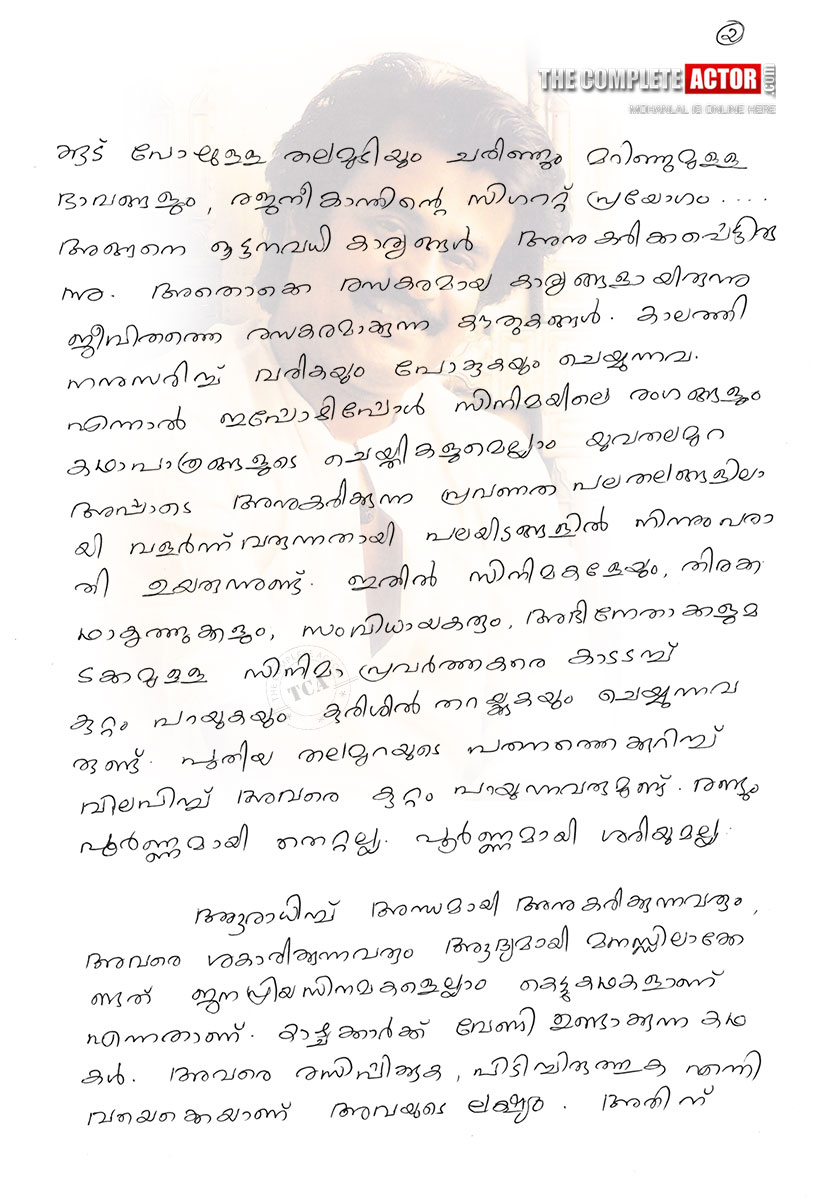 ൨
THE COMPLETE ACTOR .COM
MOHANLAL IS ONLINE HERE
കൂട് പോലുള്ള തലമുടിയും ചരിഞ്ഞും മറിഞ്ഞുമുള്ള
ഭാവങ്ങളും, രജനീകാന്തിന്റെ സിഗററ്റ് പ്രയോഗം ....
അങ്ങനെ ഒട്ടനവധി കാര്യങ്ങൾ അനുകരിക്കപ്പെട്ടിരു
ന്നു. അതൊക്കെ രസകരമായ കാര്യങ്ങളായിരുന്നു
ജീവിതത്തെ രസകരമാക്കുന്ന കൗതുകങ്ങൾ. കാലത്തി
നനുസരിച്ച് വരികയും പോകുകയും ചെയ്യുന്നവ.
എന്നാൽ ഇപ്പോഴിപ്പോൾ സിനിമയിലെ രംഗങ്ങളും
കഥാപാത്രങ്ങളുടെ ചെയ്തികളുമെല്ലാം യുവതലമുറ
അപ്പാടെ അനുകരിക്കുന്ന പ്രവണത പലതലങ്ങളിലാ
യി വളർന്ന് വരുന്നതായി പലയിടങ്ങളിൽ നിന്നും പരാ
തി ഉയരുന്നുണ്ട്. ഇതിൽ സിനിമകളേയും, തിരക്ക
ഥാകൃത്തുക്കളും, സംവിധായകരും, അഭിനേതാക്കളുമ
ടക്കമുള്ള സിനിമാ പ്രവർത്തകരെ കാടടച്ച്
കുറ്റം പറയുകയും കുരിശിൽ തറയ്ക്കുകയും ചെയ്യുന്നവ
രുണ്ട്. പുതിയ തലമുറയുടെ പതനത്തെക്കുറിച്ച്
വിലപിച്ച് അവരെ കുറ്റം പറയുന്നവരുമുണ്ട്. രണ്ടും
പൂർണ്ണമായി തെറ്റല്ല. പൂർണ്ണമായി ശരിയുമല്ല.
ആരാധിച്ച് അന്ധമായി അനുകരിക്കുന്നവരും,
അവരെ ശകാരിക്കുന്നവരും ആദ്യമായി മനസ്സിലാക്കേ
ണ്ടത് ജനപ്രിയസിനമകളെല്ലാം കെട്ടുകഥകളാണ്
എന്നതാണ്. കാഴ്ചക്കാർക്ക് വേണ്ടി ഉണ്ടാക്കുന്ന കഥ
കൾ. അവരെ രസിപ്പിക്കുക, പിടിച്ചിരുത്തുക എന്നി
വയൊക്കെയാണ് അവയുടെ ലക്ഷ്യം. അതിന്
TCA